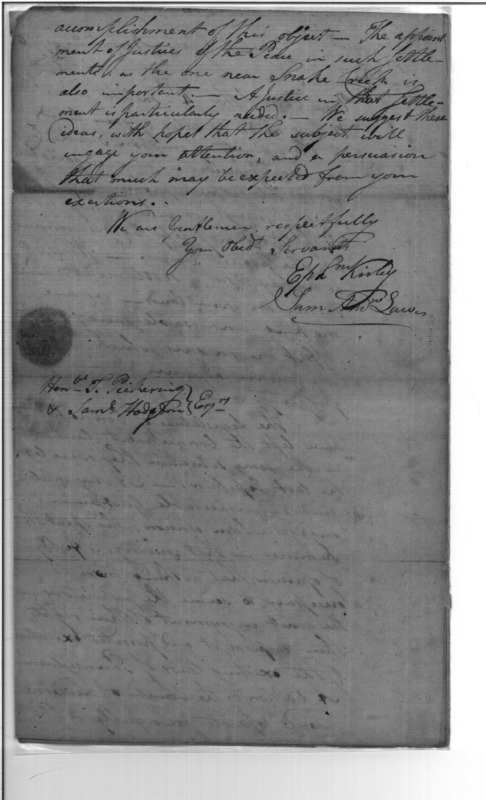 accomplishment of this object — The appoint
ment of Justices of the Peace in such settle-
ments, as the one near Snake Creek is
also important. — A Justice in that settle-
ment is particularly needed. — We suggest these
ideas, with hopes that the subject will
engage your attention, and a persuasion
that much may be expected from your
exertions. -
We are, Gentlemen, respectfully
Your Obed Servants
Eph^m Kirby
Sam^l
Hon^ble T. Pickering
& Sam^l Hodgdon } Esq^rs